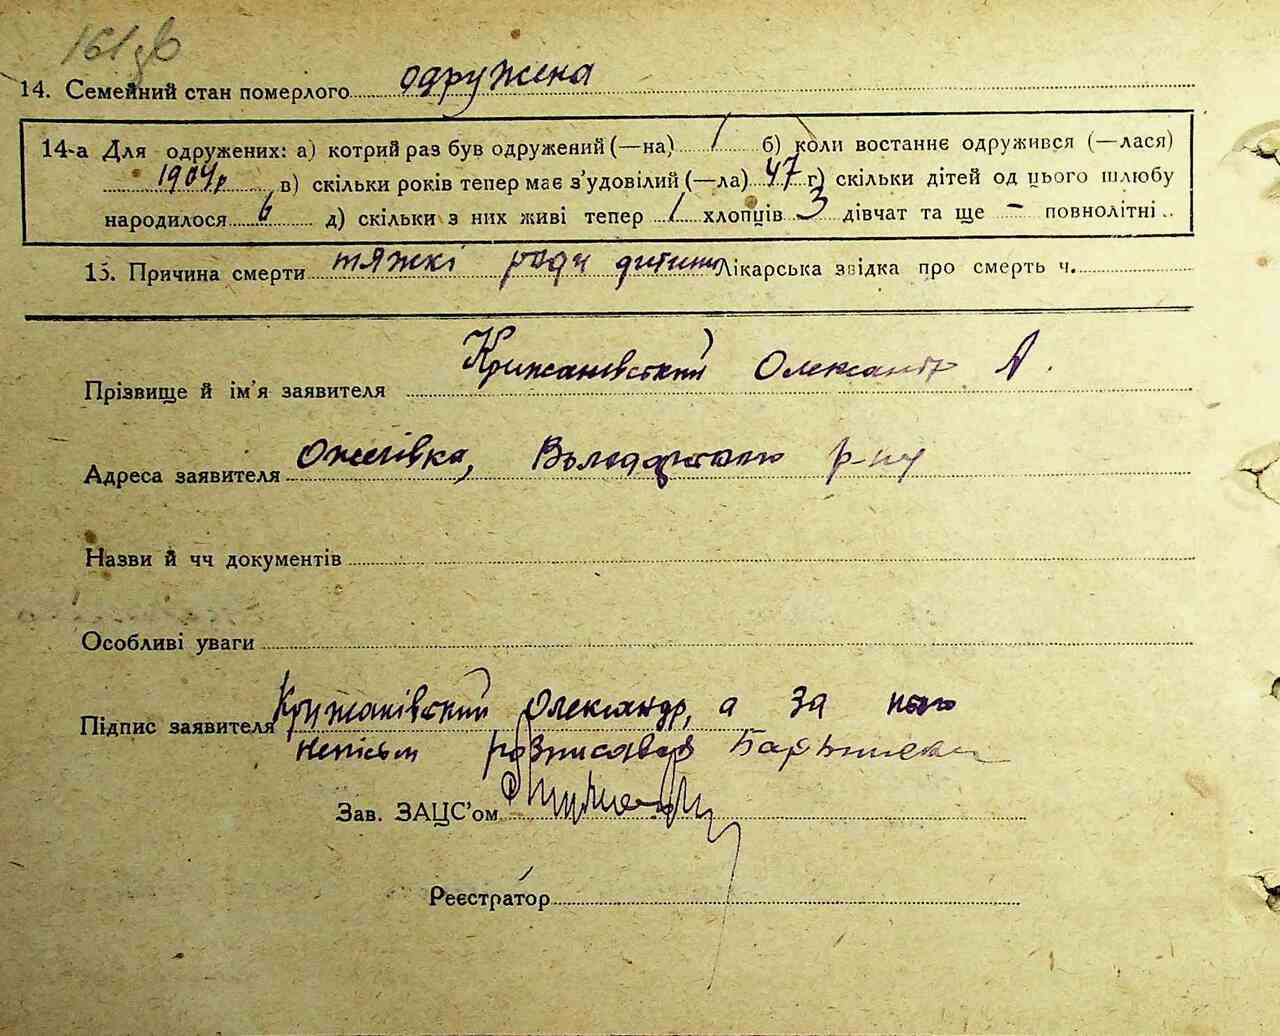 161зв
14. Семейний стан померлого одружена
14-а Для одружених: а) котрий раз був одружений (—на) 1 б) коли востаннє одружився (—лася)
1904р в) скільки років тепер має з'удовілий (—ла) 47 г) скільки дітей од цього шлюбу
народилося 6 д) скільки з них живі тепер 1 хлопців 3 дівчат та ще - повнолітні
15. Причина смерти тяжкі роди дитини Лікарська звідка про смерть ч.
Прізвище й ім'я заявителя Крижанівський Олександр А.
Адреса заявителя Ожегівка, р-ну
Назви й чч документів
Особливі уваги
Підпис заявителя Крижанівський Олександр, а за нього
неписьм розписався
Зав. ЗАЦС'ом
Реєстратор